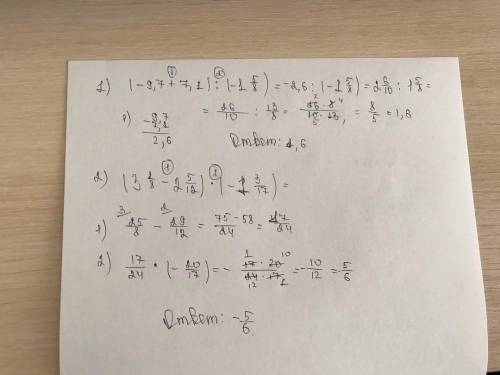 1) (-9,7 + 7,1) : (-1 5/8) = -2,6 : (-1 5/8) = 2 6/10 : 1 5/8 =
= 26/10 : 13/8 = 26 · 8 / 10 · 13 = 8/5 = 1,6
1) - 9,7 7,1 2,6
Ответ: 1,6
2) (3 1/8 - 2 5/12) · (-1 3/17) =
1) 25/8 - 29/12 = 75 - 58 / 24 = 17/24
2) 17/24 · (- 20/17) = - 17 · 20 / 24 · 17 = - 10/12 = - 5/6
Ответ: - 5/6